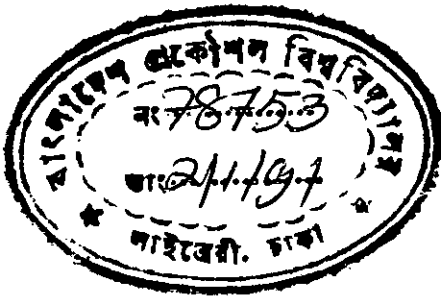 বাংলাদেশ প্রকৌশল বিশ্ববিদ্যালয়
নং 78753
তাং 2/1/91
লাইব্রেরী. ঢাকা